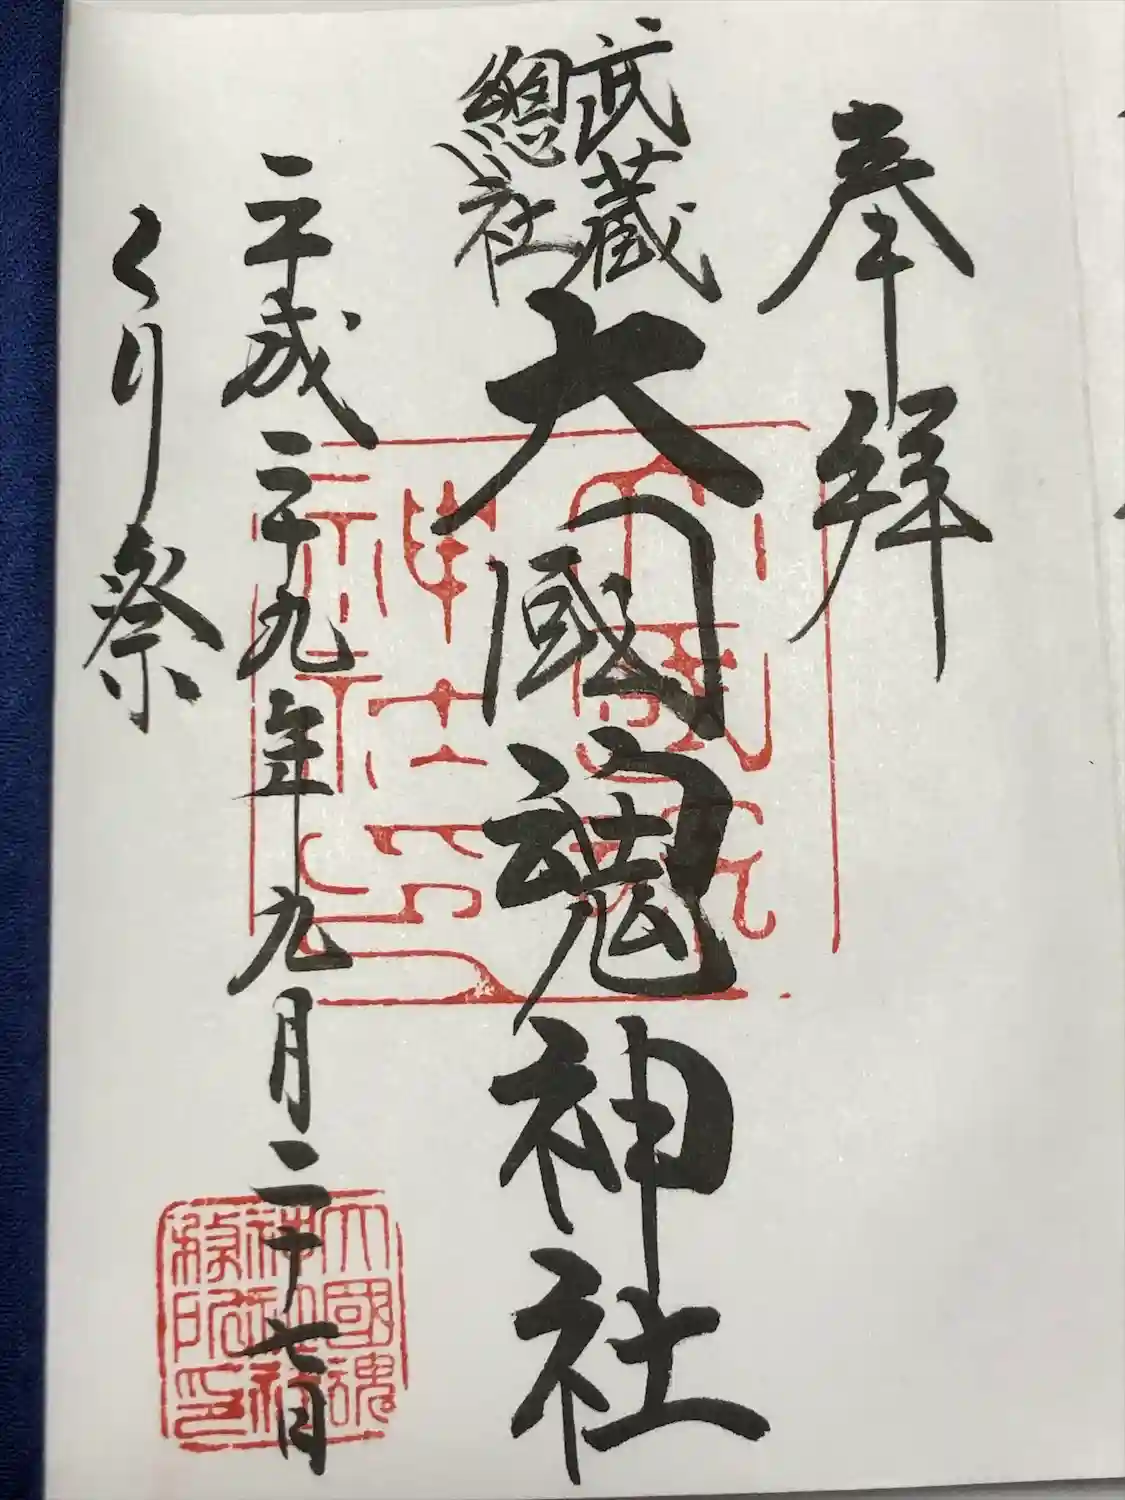 奉拝
武蔵
總社
大國魂神社
平成二十九年九月二十七日
くり祭
大國魂神社社務所印